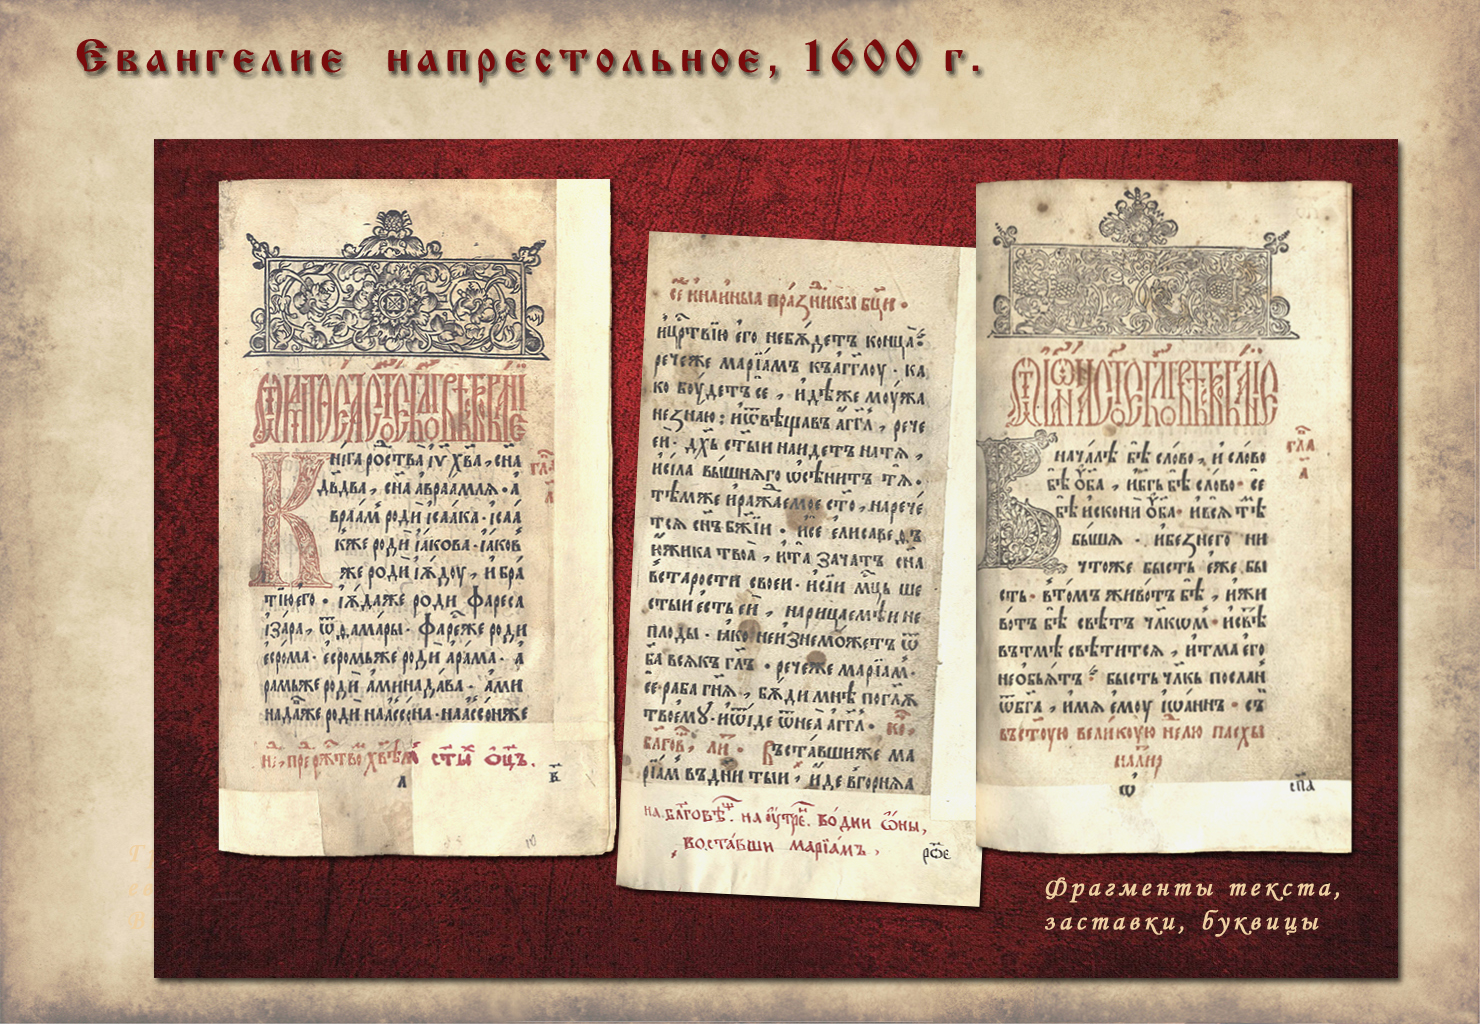 Евангелие напрестольное, 1600 г.
кни́га ро́ства і҆у҃ хв҃а, сн҃а
гла
дв҃два, сн҃а авраамля · а
враам роди́ ісаа́ка · ісаа
кже роди́ іа́кова · іа́ков
же роди́ ію́доу, и бра
тїю его · ію́да же роди фа́реса
і за́ра, ѿ ѳама́ры · фаре́же роди
есро́ма · есро́мьже роди́ ара́ма · а
ра́мьже роди́ аминада́ва · ами
нада́вже роди́ наассо́на · наассо́нже
ст҃ы́ ѻц҃ъ.
л
в҃
пра́зники бц҃и ·
и црⷭ҇твїю его не бꙋ́детъ конца̀
рече же марїа́мъ къ а́гг҃лоу · ка
ко боу́детъ се, идѣ́же моу́жа
не зна́ю: и ѿвѣща́въ а́гг҃лъ, рече
ей · дх҃ъ ст҃ы́и на́идетъ на тѧ,
и си́ла вы́шняго ѡсѣни́тъ тѧ ·
тѣ́мже и ража́емое ст҃о, нарече́
тся сн҃ъ бж҃їи · и се елисаве́ѳъ
ю́жика твоя̀, и та̀ зача́тъ сн҃а
в ста́рости свое́и · и се́и мц҃ъ ше
сты́и е́сть ей, нарица́емѣи не
пло́ды · іа́ко не изнемо́жетъ ѿ
ба҃ всякъ гл҃ъ · рече же марїа́мъ ·
се раба гн҃я, бꙋ́ди мнѣ̀ по гл҃ꙋ
твоемꙋ̀ · и ѿи́де ѿ нея̀ а́гг҃лъ · ко҃,
бл҃гов, ли · въста́вшиже ма
рїа́м въ дни ты́и, и́де в го́рняя
на бл҃говѣщ. на оу́тре. во дни ѻ́ны,
воста́вши марїа́мъ,
рѻе
в нача́лѣ бѣ̀ сло́во, и сло́во
гла
а
бѣ̀ оу҆ ба҃, и бг҃ъ бѣ̀ сло́во · се
бѣ̀ и́скони оу҆ ба҃ · и вся тѣ́м
бы́шя · и без него ни
что́же бысть е́же бы
сть · в то́мъ живо́тъ бѣ̀, и жи
во́тъ бѣ̀ свѣ́тъ чл҃кѡм · и свѣ́
въ тмѣ̀ свѣ́тится, и тма̀ его
не обья́тъ · бы́сть чл҃къ по́слан
ѿ бг҃а, и́мя емоу̀ іѡа́ннъ · съ
въ ст҃оую вели́коую не҃лю па́схы
на ли́р
ѡ
спа
Фрагменты текста,
заставки, буквицы